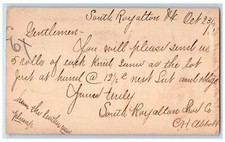 South Royalton Vt Oct 24/
Gentlemen-
You will please send us
5 rolls of each kind same as the lot
just at hand @ 12½c next Sat and oblige
Yours truly
South Royalton Co
CH Abbott